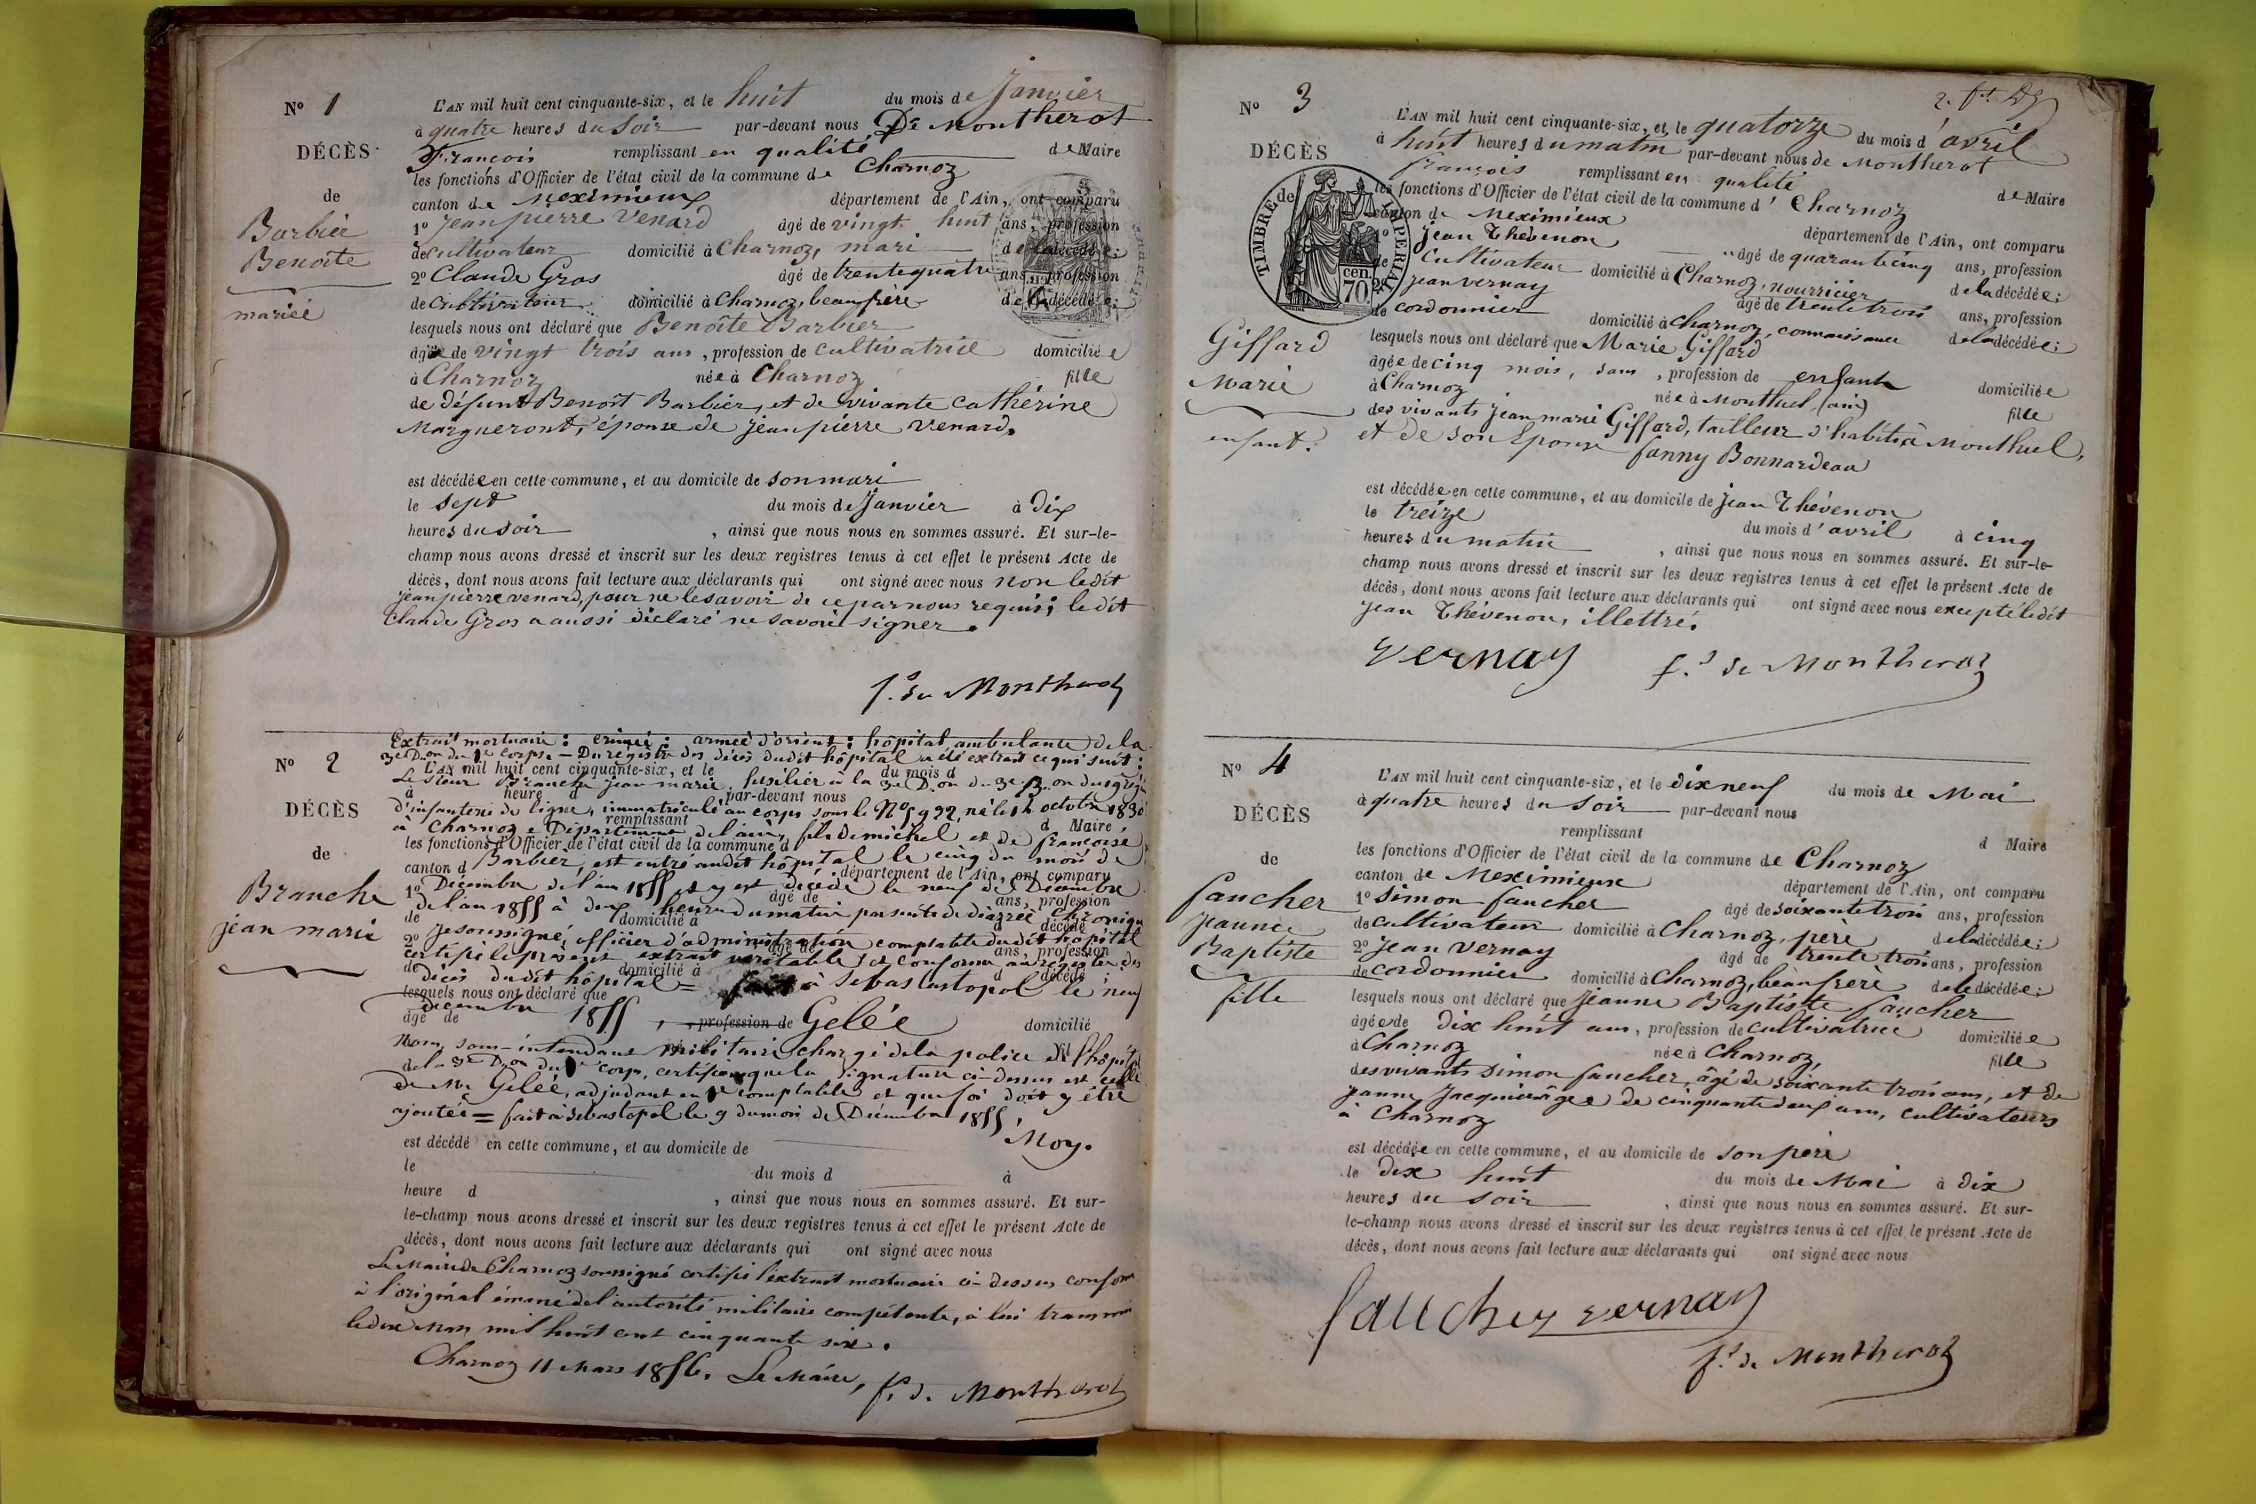 N° 1
DÉCÈS
de
Barbier
Benoîte
mariée
L'AN mil huit cent cinquante-six, et le huit du mois de Janvier
à quatre heures du Soir par-devant nous De Montherot
François remplissant en qualité de Maire
les fonctions d'Officier de l'état civil de la commune de Charnoz
canton de Meximieux département de l'Ain, ont comparu
1° jean pierre Venard âgé de vingt huit ans, profession
de cultivateur domicilié à Charnoz, mari de la décédée;
2° Claude Gros âgé de trente quatre ans, profession
de Cultivateur domicilié à Charnoz, beau frère de la décédée;
lesquels nous ont déclaré que Benoîte Barbier
âgée de vingt trois ans, profession de cultivatrice domiciliée
à Charnoz née à Charnoz fille
de défunt Benoît Barbier, et de vivante Cathérine
Margueront, épouse de jean pierre Venard.
est décédée en cette commune, et au domicile de son mari
le sept du mois de Janvier à dix
heures du soir, ainsi que nous nous en sommes assuré. Et sur-le-
champ nous avons dressé et inscrit sur les deux registres tenus à cet effet le présent Acte de
décès, dont nous avons fait lecture aux déclarants qui ont signé avec nous non le dit
jean pierre venard, pour ne le savoir de ce par nous requis; le dit
Claude Gros a aussi déclaré ne savoir signer.
f.s de Montherot
N° 2
DÉCÈS
de
Branche
jean marie
Extrait mortuaire : crimée : armée d'orient : hôpital ambulante de la
3e D.on du 1er corps. — Du registre des décès dudit hôpital a été extrait ce qui suit :
L'AN mil huit cent cinquante-six, et le du mois d
Le Sieur Branche jean marie, fusilier à la 3e D.on du 3e B.on du
à heure d par-devant nous
d'infanterie de ligne, immatriculé au corps sous le N° 5992, né le 14 octobre 1830
remplissant d Maire
à Charnoz Département de l'ain, fils de michel et de françoise
les fonctions d'Officier de l'état civil de la commune d
Barbier, est entré audit hôpital le cinq du mois de
canton d département de l'Ain, ont comparu
Décembre de l'an 1855 et y est décédé le neuf de Décembre
1° âgé de ans, profession
de l'an 1855 à deux heures du matin par suite de diarrée chronique
de domicilié à d décédé
Je soussigné, officier d'administration comptable dudit hôpital
2° âgé de ans, profession
certifie le présent extrait véritable et conforme au registre des
de domicilié à d décédé
décès dudit hôpital = fait à Sebastopol le neuf
lesquels nous ont déclaré que
décembre 1855
âgé de , profession de Gelée domicilié
Nous, sous-intendant militaire chargé de la police de l'hôpital
de la 3e D.on du 1er corps, certifions que la signature ci-dessus est celle
de Mr Gelée, adjudant en 1er comptable et que foi doit y être
ajoutée = fait à Sebastopol le 9 du mois de Décembre 1855.
Moy.
est décédé en cette commune, et au domicile de
le du mois d à
heure d , ainsi que nous nous en sommes assuré. Et sur-
le-champ nous avons dressé et inscrit sur les deux registres tenus à cet effet le présent Acte de
décès, dont nous avons fait lecture aux déclarants qui ont signé avec nous
Le Maire de Charnoz soussigné certifie l'extrait mortuaire ci-dessus conforme
à l'original émané de l'autorité militaire compétente, à lui transmis
le dix Mars mil huit cent cinquante six.
Charnoz 11 Mars 1856. Le Maire, f.s de Montherot
N° 3
DÉCÈS
de
Giffard
Marie
enfant.
TIMBRE IMPERIAL
70 cen.
L'AN mil huit cent cinquante-six, et le quatorze du mois d'avril
à huit heures du matin par-devant nous de Montherot
françois remplissant en qualité de Maire
les fonctions d'Officier de l'état civil de la commune d' Charnoz
canton de Meximieux département de l'Ain, ont comparu
1° jean Thévenon âgé de quarante cinq ans, profession
de Cultivateur domicilié à Charnoz, nourricier de la décédée;
2° jean vernay âgé de trente trois ans, profession
de cordonnier domicilié à Charnoz, connaissance de la décédée;
lesquels nous ont déclaré que Marie Giffard
âgée de cinq mois, sans, profession de enfant domiciliée
à Charnoz née à Montluel, (ain) fille
des vivants jean marie Giffard, tailleur d'habits, à Montluel,
et de son Epouse fanny Bonnardeau
est décédée en cette commune, et au domicile de jean Thévenon
le treize du mois d'avril à cinq
heures du matin, ainsi que nous nous en sommes assuré. Et sur-le-
champ nous avons dressé et inscrit sur les deux registres tenus à cet effet le présent Acte de
décès, dont nous avons fait lecture aux déclarants qui ont signé avec nous excepté le dit
jean Thévenon, illettré.
Vernay f.s de Montherot
N° 4
DÉCÈS
de
faucher
jeanne
Baptiste
fille
L'AN mil huit cent cinquante-six, et le dix neuf du mois de Mai
à quatre heures du Soir par-devant nous
remplissant d Maire
les fonctions d'Officier de l'état civil de la commune de Charnoz
canton de Meximieux département de l'Ain, ont comparu
1° Simon faucher âgé de soixante trois ans, profession
de cultivateur domicilié à Charnoz, père de la décédée;
2° jean vernay âgé de trente trois ans, profession
de cordonnier domicilié à Charnoz, beau frère de la décédée;
lesquels nous ont déclaré que jeanne Baptiste faucher
âgée de dix huit ans, profession de cultivatrice domiciliée
à Charnoz née à Charnoz, fille
des vivants Simon faucher, âgé de soixante trois ans, et de
jeanne Jacquier âgée de cinquante deux ans, cultivateurs
à Charnoz
est décédée en cette commune, et au domicile de son père
le dix huit du mois de Mai à dix
heures du soir, ainsi que nous nous en sommes assuré. Et sur-
le-champ nous avons dressé et inscrit sur les deux registres tenus à cet effet le présent Acte de
décès, dont nous avons fait lecture aux déclarants qui ont signé avec nous
faucher vernay
f.s de Montherot